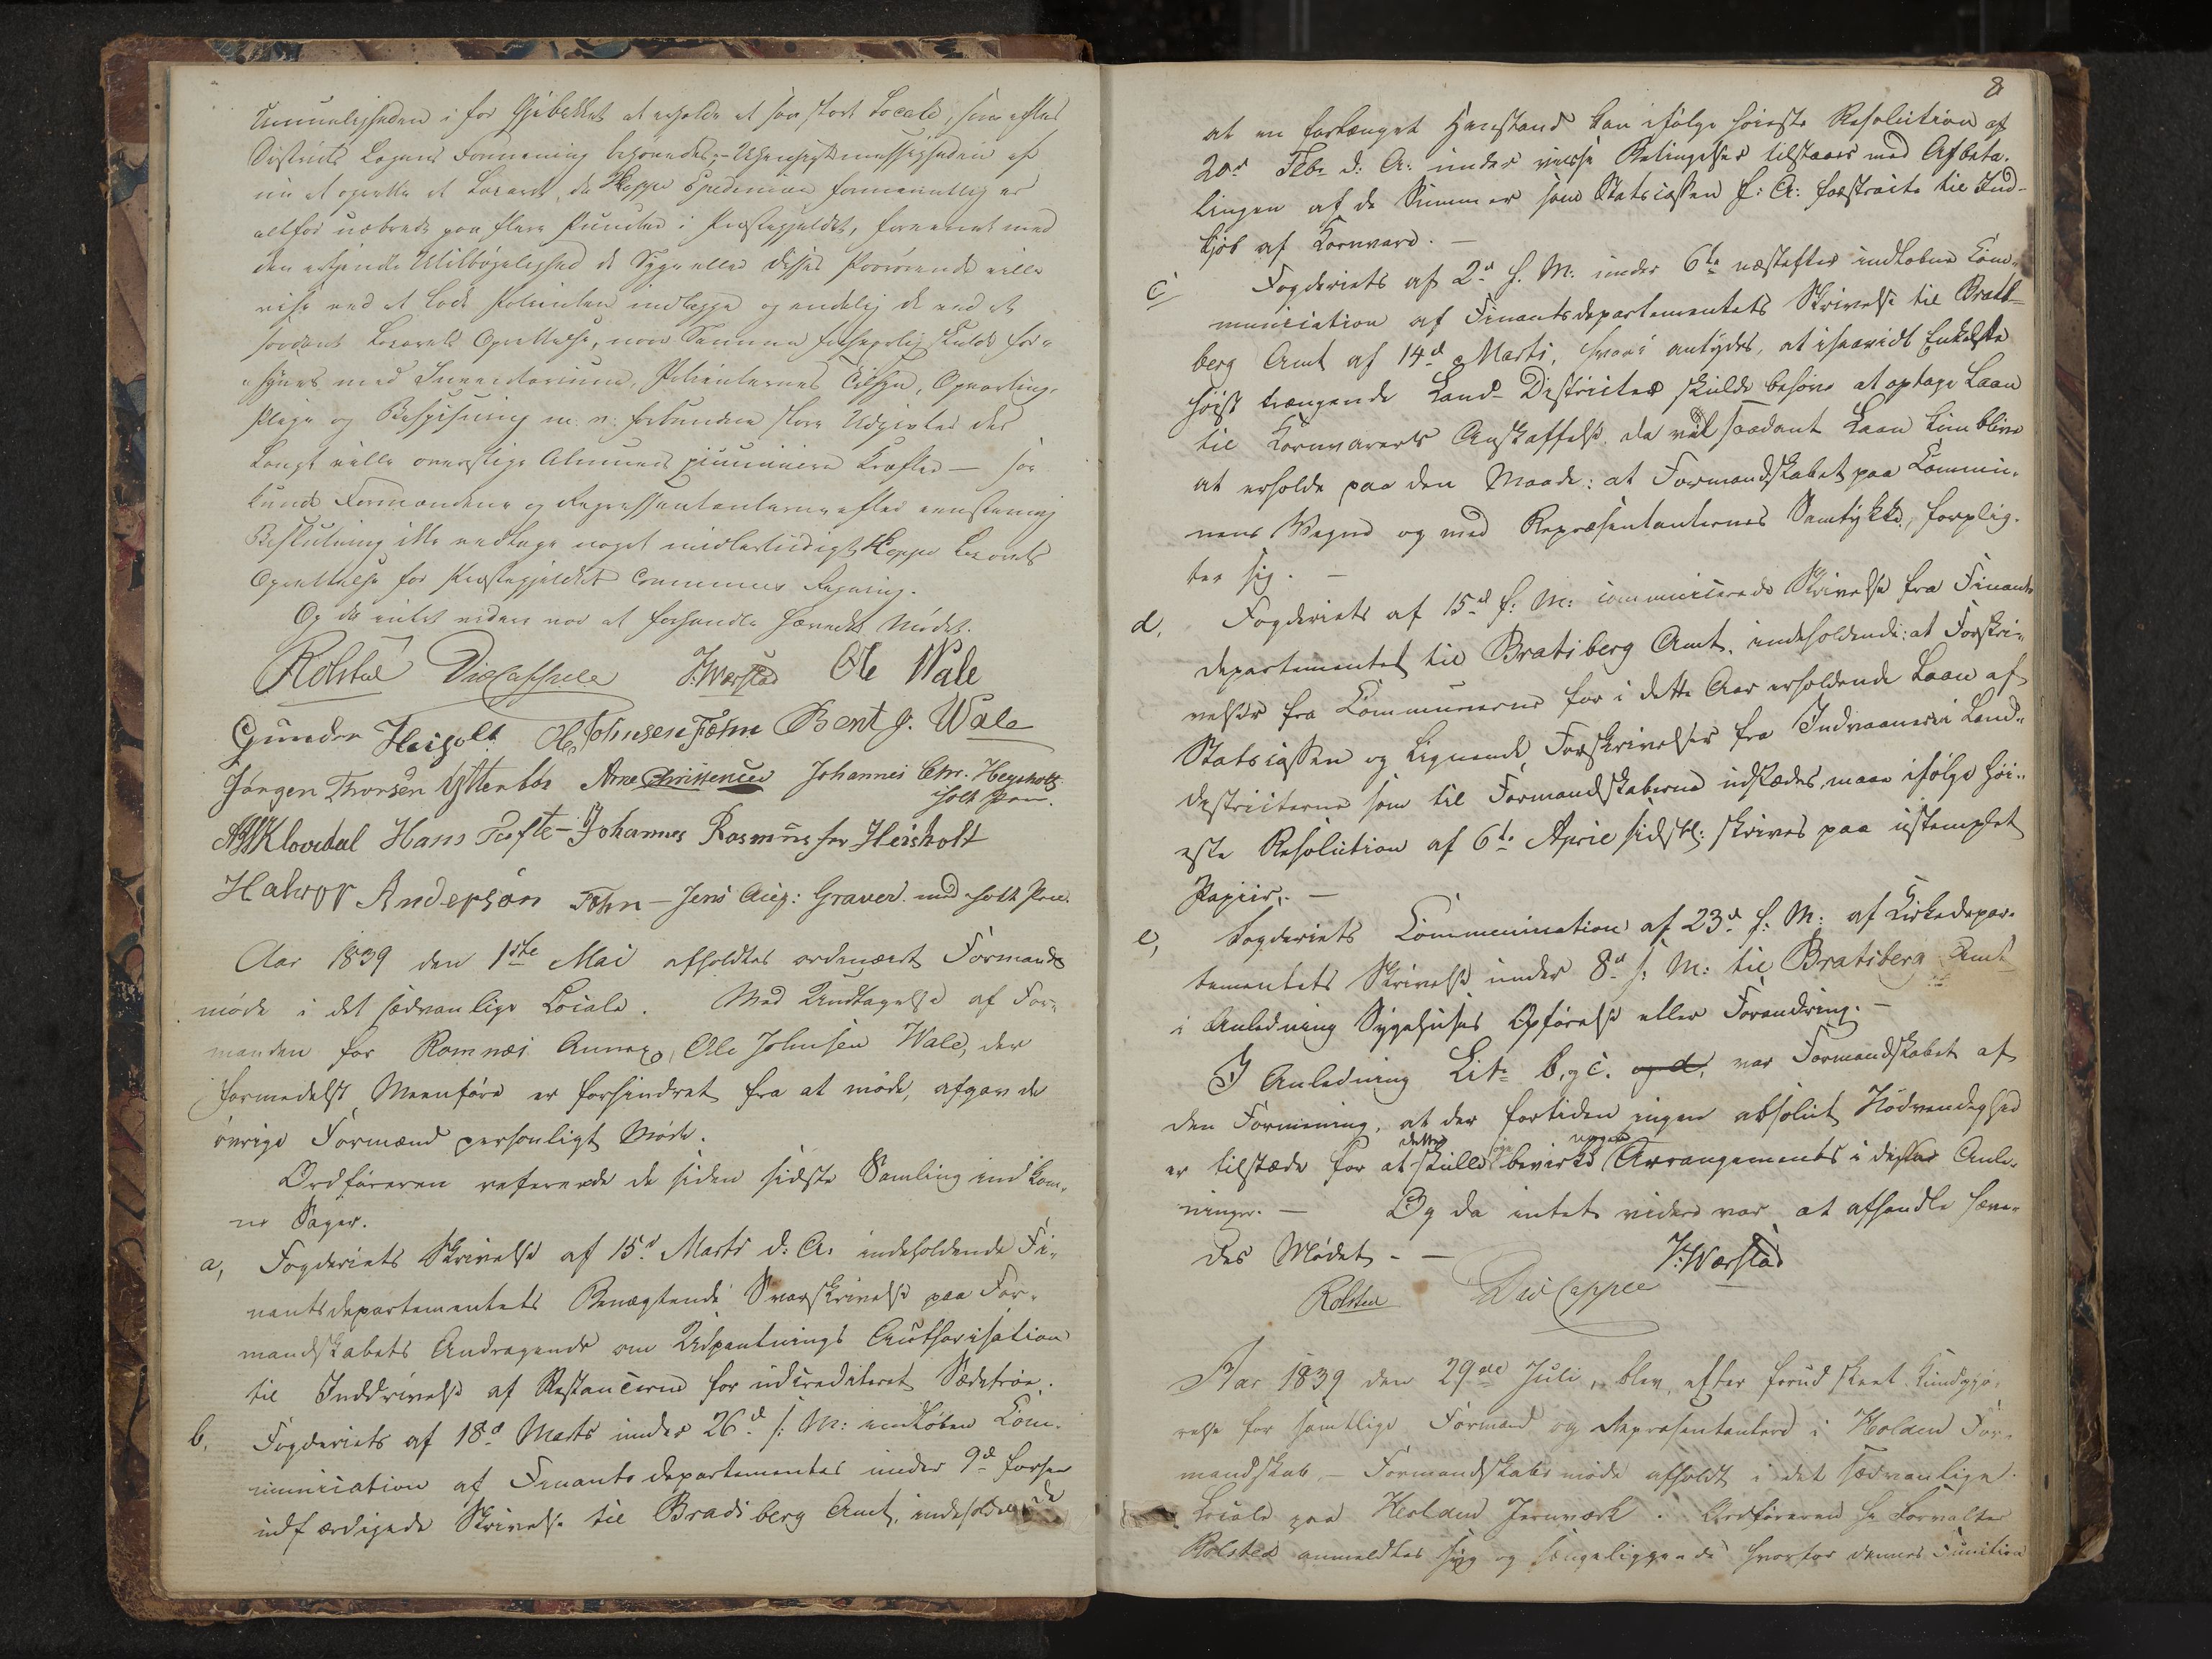 Umueligheden i for Øjebelket at erholde et saa stort Locale, som efter
Districts Lægens Formening behøvedes; – Uhensigtmæssigheden af
nu at oprette et Lazareth, da Koppe Epedemien formeentlig er
altfor udbredt paa flere Puncter i Præstegjeldet, foreenet med
den erkjendte Utilbøjelighed de Syge eller disses Paarørende ville
vise ved at lade Patienten indlægge og endelig de ved et
saadant Lazareths Oprettelse, naar Samme tilhørlig skulde for-
synes med Inventarium, Patienternes Tilsyn, Opvartning,
Pleje og Bespisning m. v. forbundne store Udgivter der
langt ville overstige Almuens pecuniære Kræfter — saa
kunde Formændene og Repræsentanterne efter eenstemmig
Beslutning ikke vedtage noget midlertidigt Koppe Lazareths
Oprettelse for Præstegjeldets Communes Regning.
Og da intet videre var at forhandle hævedes Mødet.
Rolsted Dvecappele J. Wærstad Ole Wale
Gunder Heisholt H. Johnsen Fæhn Bent J. Wale
Jørgen Thorsen Ytterbøe Arne Christensen Johannes Chr. Heysholt
holt Pen.
Klovedal Hans Tufte – Johannes Rasmussen Heisholt
Halvor Anderson Fæhn – Jens Aug: Graver med holt Pen.
Aar 1839 den 1ste Mai afholdtes ordenært Formands
møde i det sædvanlige Locale. Med Undtagelse af For-
manden for Romnæs Annexo, Ole Johnsen Wale, der
formedelst Meenføre er forhindret fra at møde, afgav de
øvrige Formænd personligt Møde.
Ordføreren refererede de siden sidste Samling indkom-
ne Sager.
a, Fogderiets Skrivelse af 15d Marts d: A: indeholdende Fi-
nantsdepartementets Benægtende Svarskrivelse paa For-
mandskabets Andragende om Udpantnings Authorisation
til Inddrivelse af Restancerne for udcrediteret Sædetroe.
b. Fogderiets af 18d Marts under 26d s: M: indløbne Com-
munication af Finants departementes under 9d forhen
udfærdigede Skrivelse til Bradsberg Amt, indeholdende
8
at en forlænget Henstand kan ifølge høieste Resolution af
20d Febr d: A: under visse Betingelser tilstaaes med Afbeta-
lingen af de Summer som Statscassen f: A: forstracte til Ind-
kjøb af Kornvare. —
c Fogderiets af 2d f. M: under 6te næstefter indløbne Com-
munication af Finantsdepartementets Skrivelse til Bratt-
berg Amt af 14d Marts, hvori antydes, at isaavidt Enkelte
høist trængende Land-Districter skulde behøve at optage Laan
til Kornvarers Anskaffelse, da vil saadant Laan kun blive
at erholde paa den Maade: at Formandskabet paa Commu-
nens Vegne og med Repræsentanternes Samtykke, forplig-
ter sig. —
d. Fogderiets af 15d f: M: communicerede Skrivelse fra Finants
departementet til Bratsberg Amt, indeholdende: at Forskri-
velser fra Communerne for i dette Aar erholdende Laan af
Statscassen og lignende Forskrivelser fra Indvaanere i Land-
districterne som til Formandskaberne udstædes, maae ifølge høi-
este Resolution af 6te April sidstl: skrives paa ustemplet
Papiir. —
e, Fogderiets Communication af 23d f: M: af Kirkedepar-
tementets Skrivelse under 8d s: M: til Bratsberg Amt
i Anledning Sygehuses Opførelse eller Forandring. —
I Anledning Lit: b. og c. og d. var Formandskabet af
den Formening, at der fortiden ingen absolut Nødvendighed
er tilstæde for at dette skulle bevirke nogen Arrangements i disse Anle-
ninger. — Og da intet videre var at afhandle hæve-
des Mødet. —
J. Wærstad
Rolsted Dvecappele
Aar 1839 den 29de Juli, blev efter forud skeet Kundgjø-
relse for samtlige Formænd og Repræsentantere i Holden For-
mandskab, – Formandskabs møde afholdt i det sædvanlige
Locale paa Holden Jernværk. Ordføreren Hr Forvalter
Rolsted anmeldtes syg og sengeliggende hvorfor dennes Function